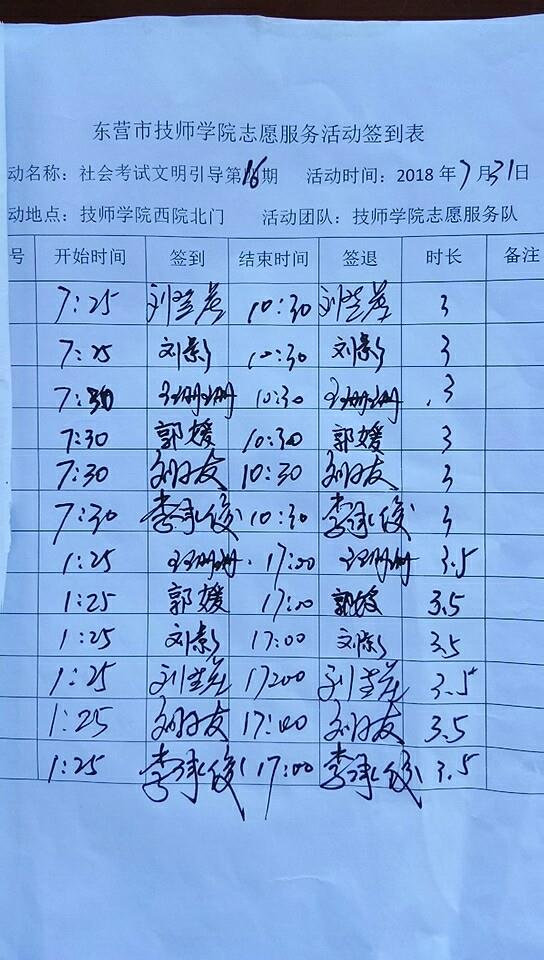 东营市技师学院志愿服务活动签到表
动名称：社会考试文明引导第16期 活动时间：2018年7月31日
动地点：技师学院西院北门 活动团队：技师学院志愿服务队
号 开始时间 签到 结束时间 签退 时长 备注
7:25 10:30 3
7:25 刘影 10:30 刘影 3
7:30 王珊珊 10:30 王珊珊 3
7:30 郭媛 10:30 郭媛 3
7:30 10:30 3
7:30 李承俊 10:30 李承俊 3
1:25 王珊珊 17:00 王珊珊 3.5
1:25 郭媛 17:00 郭媛 3.5
1:25 刘影 17:00 刘影 3.5
1:25 17:00 3.5
1:25 17:00 3.5
1:25 李承俊 17:00 李承俊 3.5